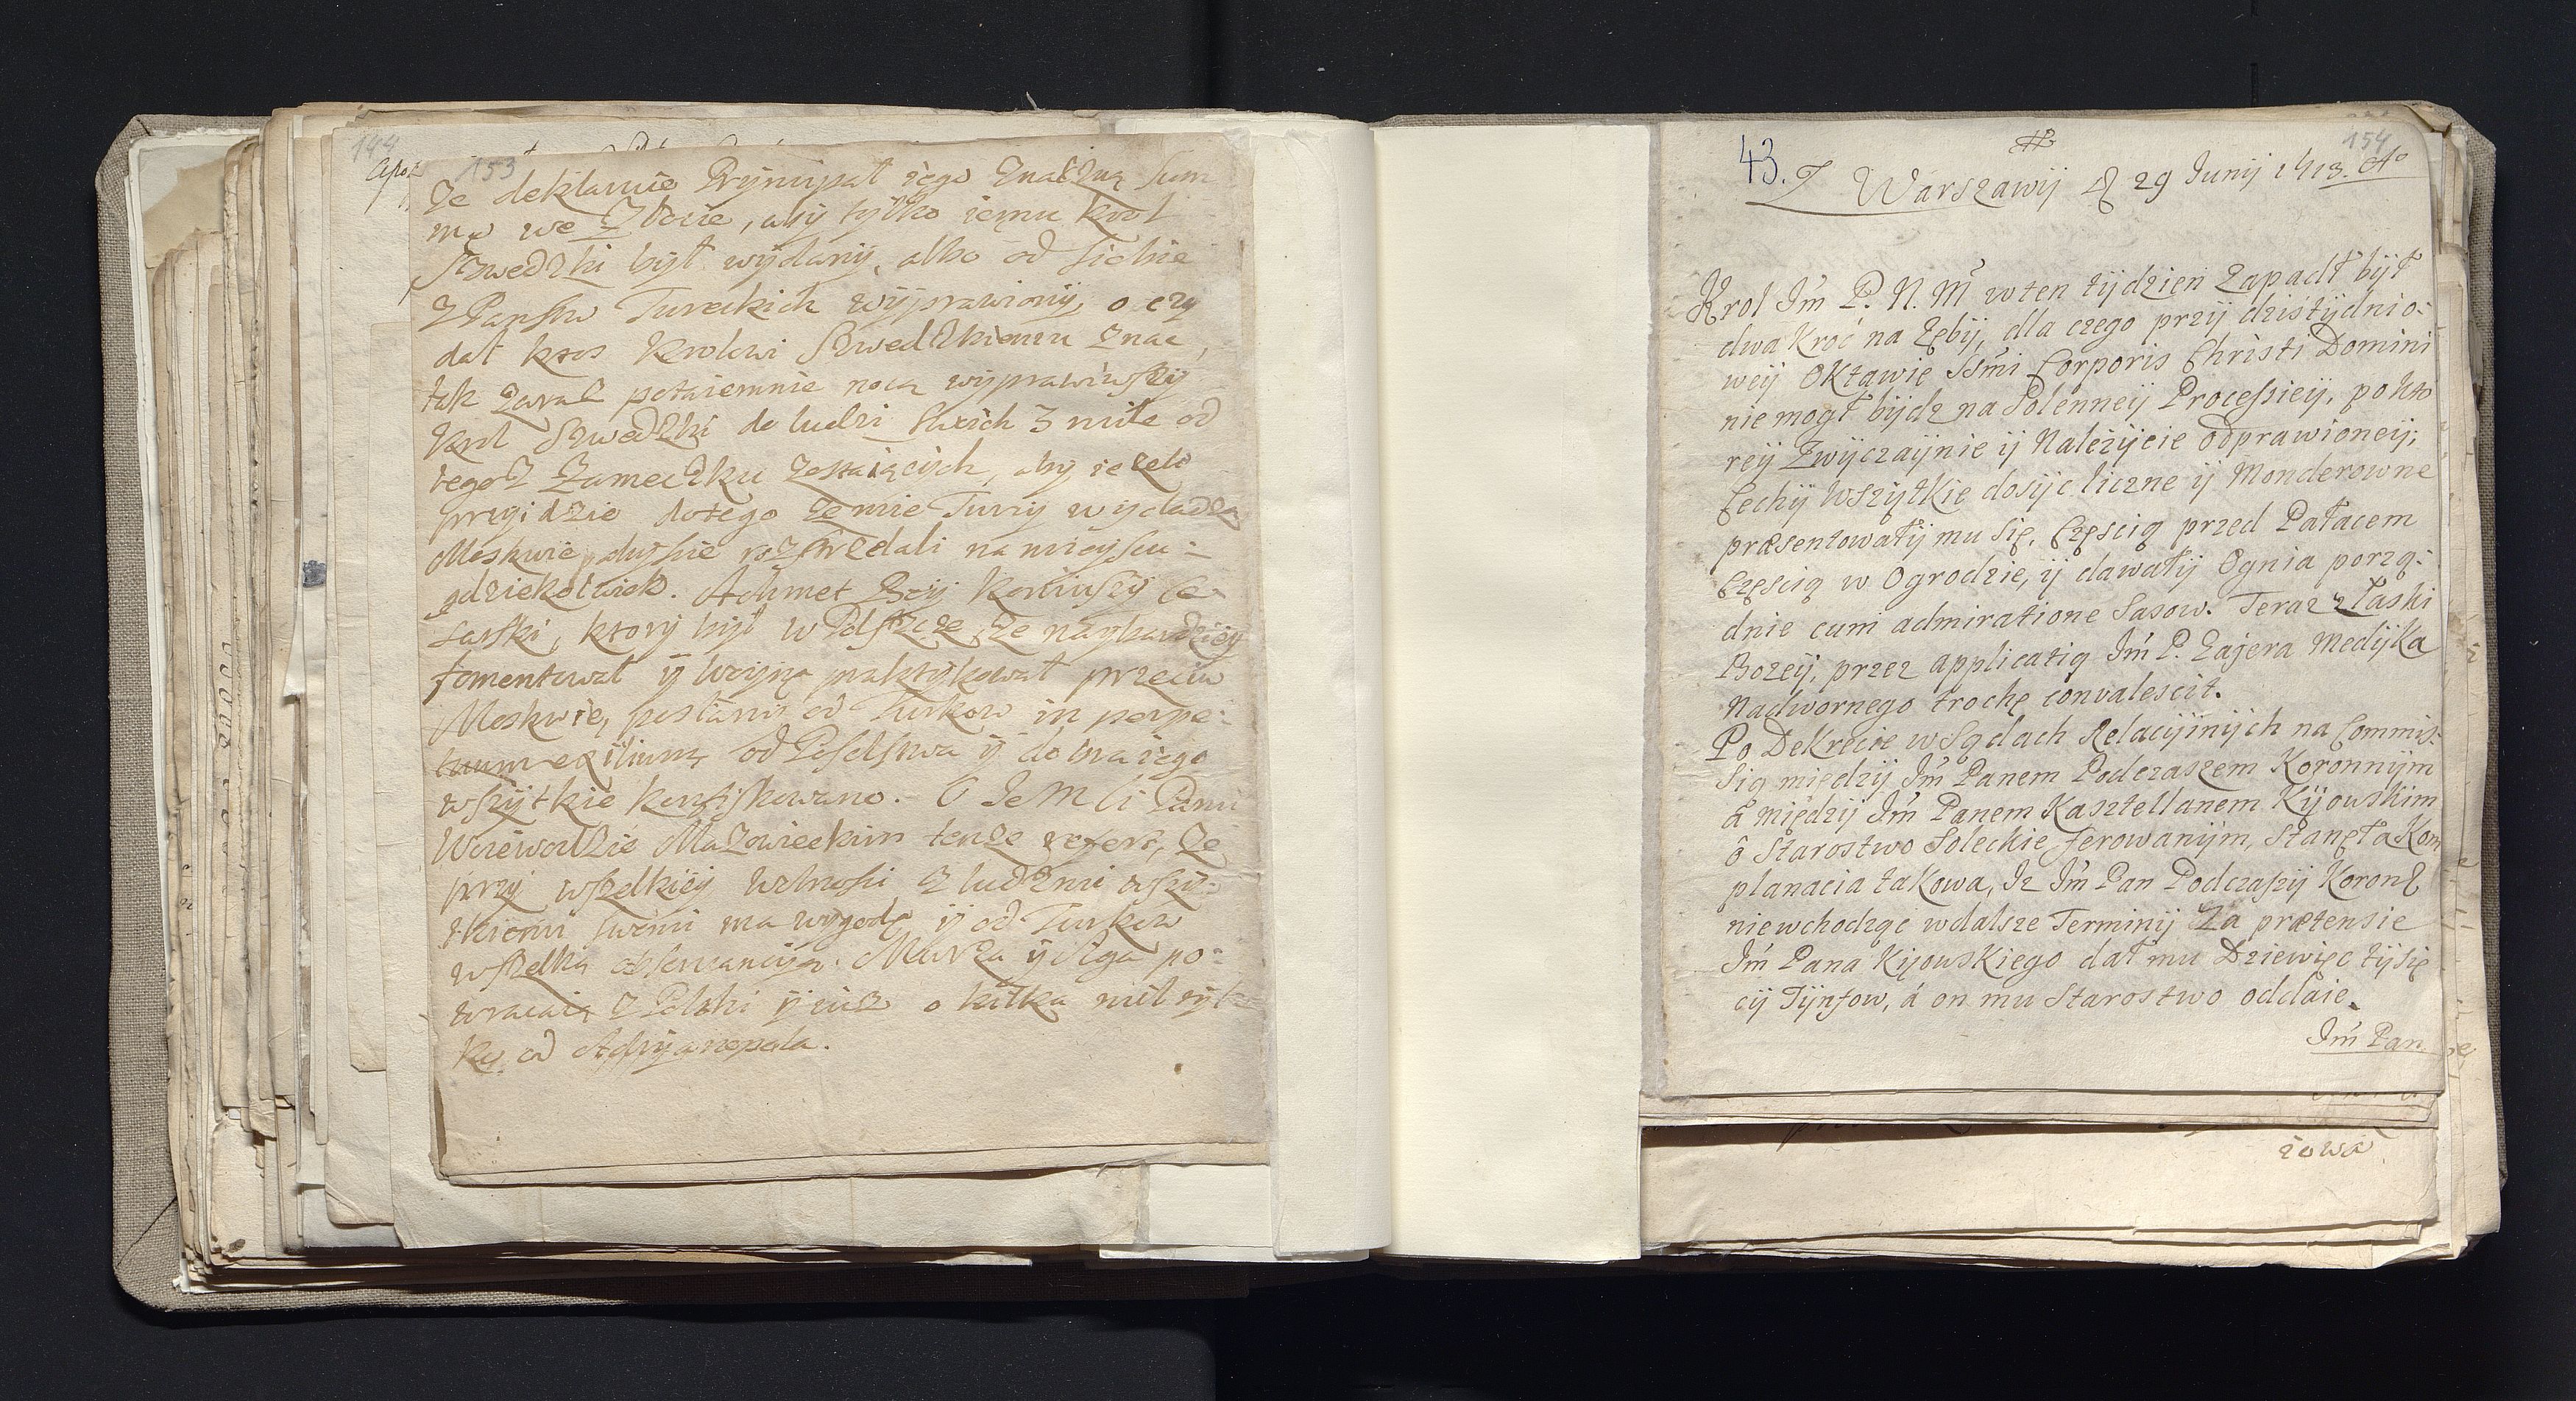 144
153
że deklaruie Prynnypał iego znaczną Sum
mę we Złocie, aby tylko iemu Krol
Szwedzki był wydany, albo od siebie
z Panstw Tureckich wyprawiony, o czy
dał ktos Krolowi Szwedzkiemu znac,
tak zaraz potaiemnie nocą wyprawiwszy
Krol Szwedzki do ludzi swoich 3 mile od
tego Zameczku zostaiących, aby ieżeli
przyidzie do tego że mie Turcy wydadzą
Moskwie, aby sie rozstrzelali na mieyscu
gdziekolwiek. Achmet Bey Koniuszy Ce-
sarski, ktory był w Polszcze, że naybardziey
fomentował y woynę praktykował przeciw
Moskwie, posłany od Turkow in perpe-
tuum exilium, od Poselstwa y dobra iego
wszytkie konfiskowano. O JeMści Panu
Woiewodzie Mazowieckim tenże refert, że
przy wszelkiey wolnosci z ludzmi wszy-
tkiemi swemi ma wygodę y od Turkow
wszelką obserwancyą. Murza y Aga po-
wracaią z Polski y iusz o kilka mil tyl
ko od Adryanopola.
43.
154
Z Warszawij d 29 Junij 1713. Ao
Krol Jm̃ P. N. M̃ w ten tijdzień zapadł bijł
dwa kroć na Zębij, dla czego przij dziśtijdnio-
weij Oktawie SSmi Corporis Christi Domini
nie mogł bijdz na Solenneij Processieij, po kto
reij Zwijczaijnie ij Należijcie odprawioneij;
Cechij wszijtkie dosijc liczne ij Monderowne
præsentowałij mu się, Częscią przed Pałacem
Częscią w Ogrodzie, ij dawałij Ognia porzą-
dnie cum admiratione Sasow. Teraz z łaski
Bozeij, przez applicatią Jm̃ P. Zajera Medijka
Nadwornego trochę convalescit.
Po Dekrecie w Sądach Relacijinijch na Commis-
sią międzij Jm̃ Panem Podczaszem Koronnijm
á międzij Jm̃ Panem Kasztellanem Kijowskim
ô Starostwo Soleckie ferowanijm, Stanęła Kom
planacia takowa, Iz Jm̃ Pan Podczaszij Koron̅
nie wchodząc w dalsze Terminij Za prætensie
Jm̃ Pana Kijowskiego dał mu Dziewięc tijsię
cij Tijnfow, á on mu Starostwo oddaie.
Jm̃ Pan
zowa